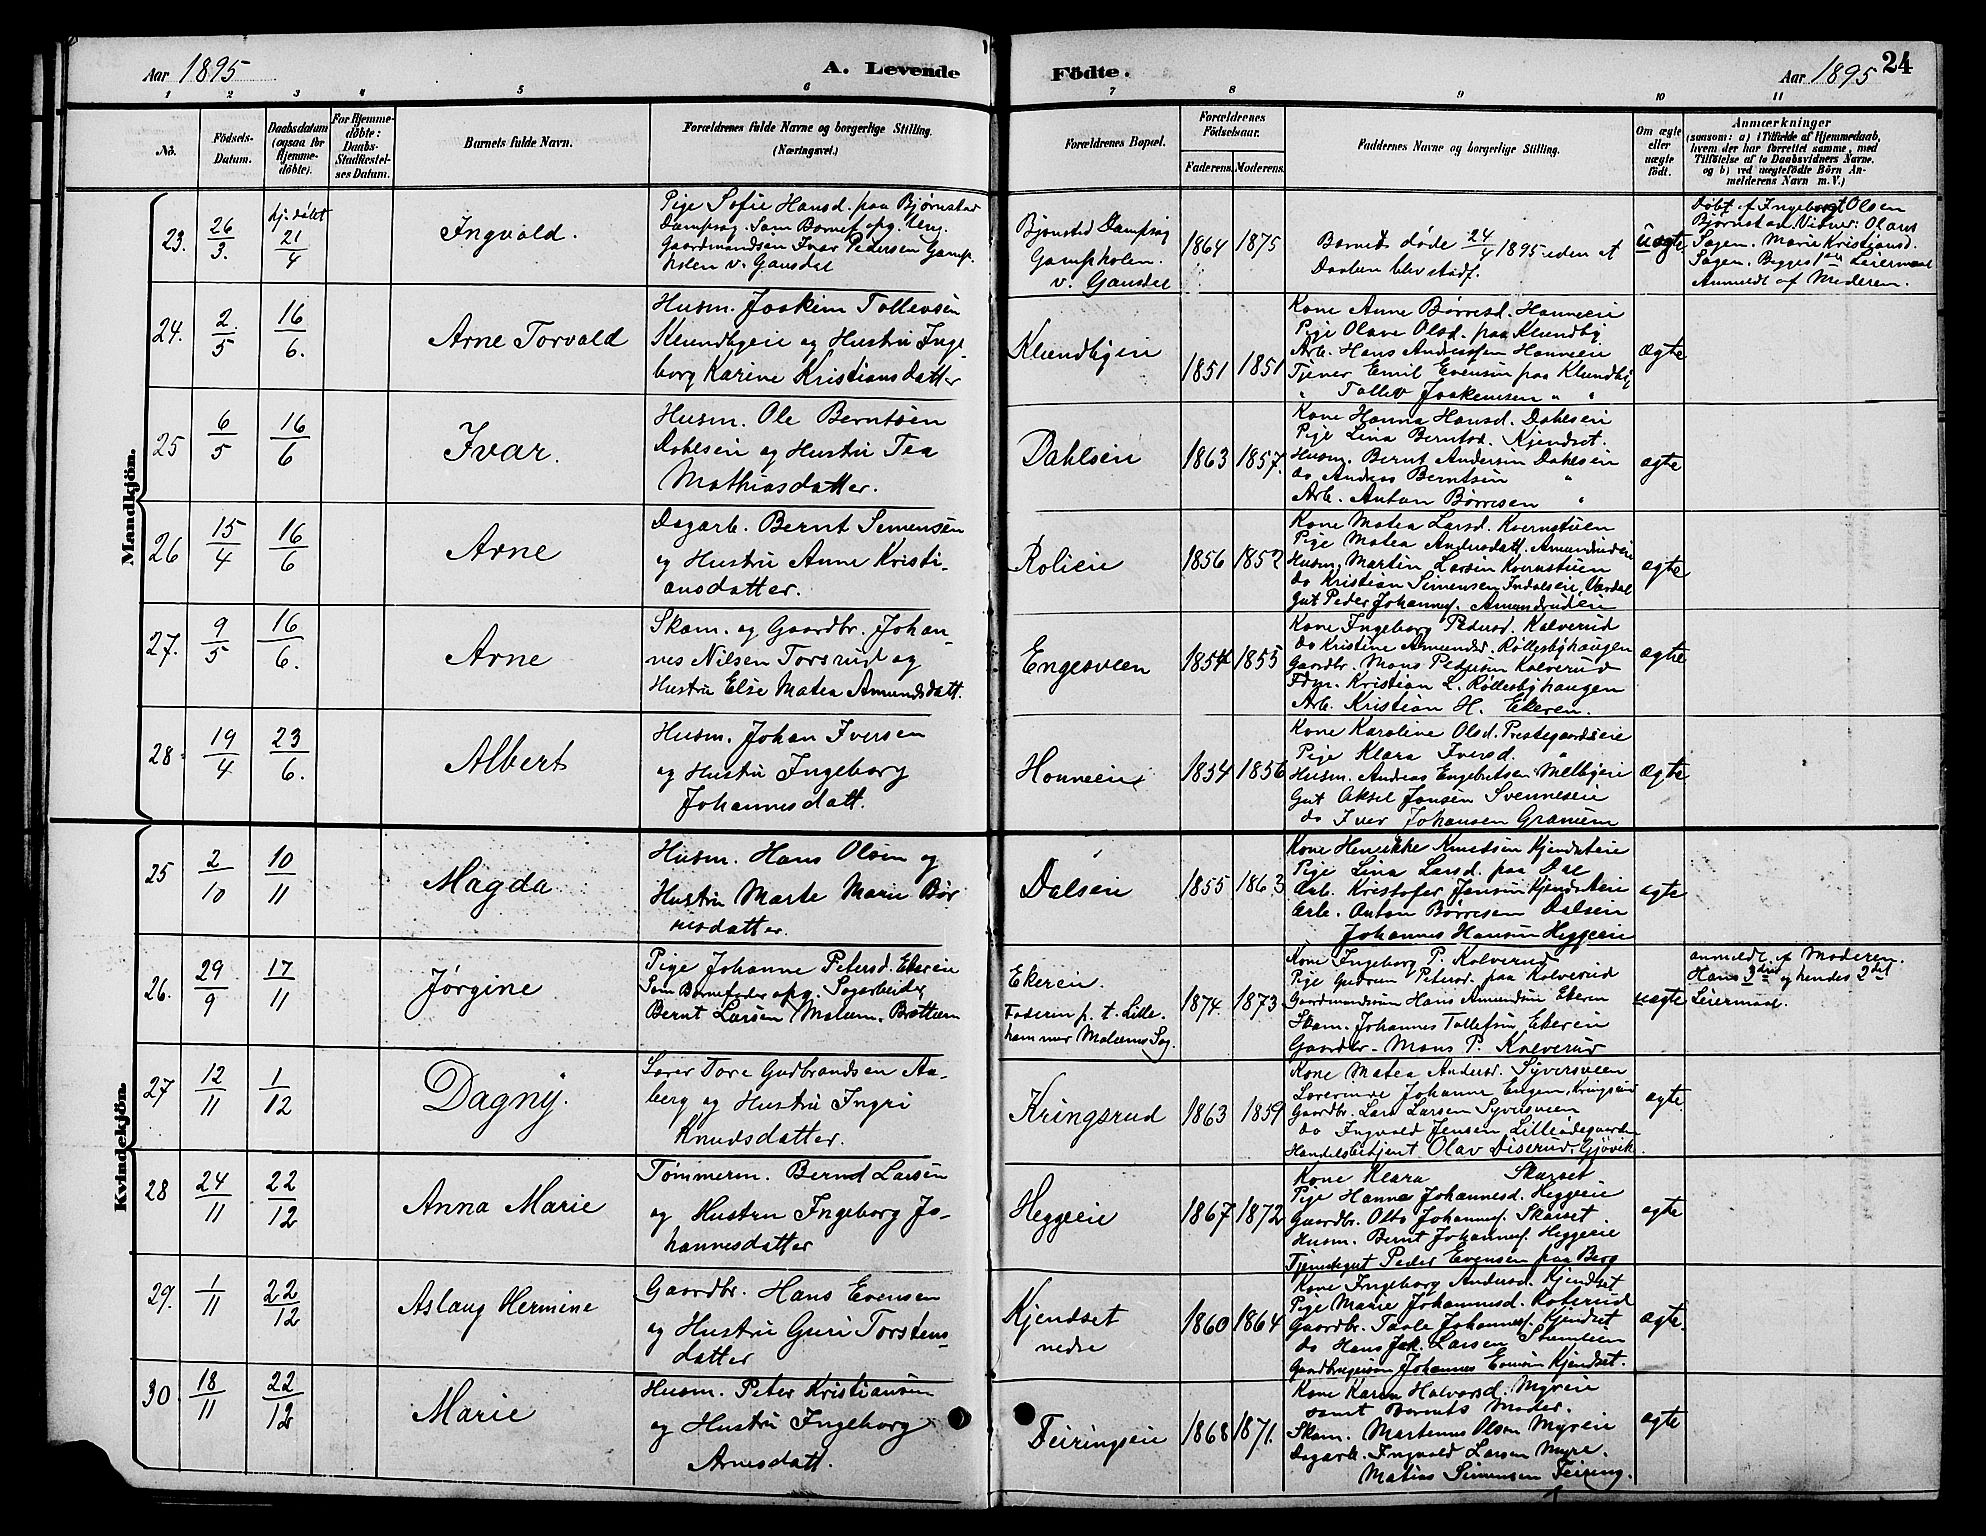 Aar 1895
A. Levende
Födte.
Aar 1895
24
1 2 3 4 5 6 7 8 9 10 11
No.
Födsels-
Datum.
Daabsdatum
(ogsaa for
Hjemme-
döbte).
For Hjemme-
döbte:
Daabs-
Stadfæstel-
ses Datum.
Barnets fulde Navn.
Forældrenes fulde Navne og borgerlige Stilling.
(Næringsvei.)
Forældrenes Bopæl.
Forældrenes
Födselsaar.
Faderens.
Moderens.
Faddernes Navne og borgerlige Stilling.
Om ægte
eller
uægte
födt.
Anmærkninger
(saasom: a) i Tilfælde af Hjemmedaab,
hvem der har forrettet samme, med
Tilföielse af to Daabsvidners Navne.
og b) ved uægtefödte Börn An-
melderens Navn m. V.)
Mandkjön.
23. 26/3. hj. døbt 21/4
Ingvald.
Pige Sofie Hansd. paa Bjørnstad
Dampsag. Som Barnef. opg. Ung.
Gaardmandssøn Ivar Pedersen Gamp-
holen v. Gausdal
Bjønstad Dampsag
Gampholen.
v. Gausdal
1864 1875
Barnet døde 24/4 1895 uden at
Daaben blev stadf.
uægte
Døbt af Ingeborg Olsen
Bjørnstad Vidner: Olaus
Sagen. Marie Kristiansd.
Sagen. Begges 1ste Leiermaal
Anmeldt af Moderen.
24. 2/5 16/6.
Arne Torvald
Husm. Joakim Tollevsen
Klundbyeie og Hustru Inge-
borg Karine Kristiansdatter
Klundbyeie
1851 1851
Kone Anne Børresd. Honneeie
Pige Olave Olsd. paa Klundby
Arb. Hans Andreassen Honneeie
Tjener Emil Evensen paa Klundby
" Tollev Joakemsen " "
Ægte
25 6/5 16/6
Ivar.
Husm. Ole Berntsen
Dahlseie og Hustru Tea
Mathiasdatter.
Dahlseie
1863 1857.
Kone Hanna Hansd. Dahlseie
Pige Lina Berntsd. Kjendset.
Husm. Bernt Andersen Dahlseie
do Andreas Berntsen "
Arb. Anton Børresen "
ægte
26 15/4 16/6
Arne
Dagarb. Bernt Simensen
og Hustru Anne Kristi-
ansdatter.
Rolieie
1856 1852
Kone Matea Larsd. Kvernstuen
Pige Matea Andersdatt. Amundrudeie
Husm. Martin Larsen Kvernstuen
do Kristian Simensen Indalseie, Værdal
Gut Peder Johannes. Amundrudeie
ægte
27. 9/5 16/6.
Arne
Skom. og Gaardbr. Johan-
nes Nilsen Torsrud og
Hustru Else Matea Amundsdatt.
Engesveen
1854 1855
Kone Ingeborg Pedersd. Kalverud
do Kristine Amundsd. Røllesbyhaugen
Gaardbr. Mons Pedersen Kolverud
Fdm. Kristian L. Røllesbyhaugen
Arb. Kristian H. Ekeren.
ægte
28. 19/4 23/6.
Albert
Husm. Johan Iversen
og Hustru Ingeborg
Johannesdatt.
Honneeie
1854 1856
Kone Karoline Olsd. Prestegaardseie
Pige Klara Iversd. "
Husm. Andreas Engebretsen Melbyeie
Gut Aksel Jensen Svenneseie
do Iver Johansen Granum
Ægte
Kvindekjön.
25 2/10 10/11
Magda
Husm. Hans Olsen og
Hustru Marte Marie Bør-
resdatter.
Dalseie
1855 1863
Kone Henrikke Knudsen Kjendseteie
Pige Lina Larsd. paa Dal
Arb. Kristofer Jensen Kjendseteie
Arb. Anton Børresen Dalseie
Johannes Hansen Heggeeie
ægte
26. 29/9 17/11
Jørgine
Pige Johanne Petersd. Ekereie
Som Barnefader opg. Sagarbeider
Bernt Larsen Bratteie
Ekereie.
Faderen p. t. Lille-
hammer Sag.
1874. 1873
Kone Ingeborg P. Kolverud
Pige Gudrun Petersd. paa Kolverud
Gaardmandssøn Hans Amundsen Ekeren
Skom. Johannes Tollefsen Ekereie
Gaardbr. Mons P. Kolverud
uægte
anmeldt af Moderen.
Hans 3die og hendes 2det
Leiermaal.
27 12/11 1/12
Dagny.
Lærer Tore Gudbrandsen Aa-
berg og Hustru Ingri
Knudsdatter.
Kringsrud
1863 1859
Kone Matea Andersd. Syversveen
Lærerinde Johanne Engen, Kringsrud
Gaardbr. Lars Larsen Syversveen
do Ingvald Jensen Lilleødegaarden
Handelsbetjent Olav Diserud, Gjøvik.
ægte
28 24/11 22/12
Anna Marie
Tømmerm. Bernt Larsen
og Hustru Ingeborg Jo-
hannesdatter
Heggeeie
1867 1872
Kone Klara Skarset
Pige Hanna Johannesd. Heggeeie
Gaardbr. Otto Johannes. Skarset
Husm. Bernt Johannes. Heggeeie
Tjenestegut Peder Evensen paa Berg
ægte
29. 1/11 22/12
Aslaug Hermine
Gaardbr. Hans Evensen
og Hustru Guri Torstens-
datter
Kjendset
nedre
1860 1864
Kone Ingeborg Andersd. Kjendset
Pige Marie Johannesd. Koterud
Gaardbr. Taale Johannes. Kjendset
do Hans Joh. Larsen
Gaardbrugersøn Johannes Evensen Kjendset.
ægte.
30. 18/11 22/12
Marie
Husm. Peter Kristiansen
og Hustru Ingeborg
Arnesdatt.
Feiringseie
1868 1871.
Kone Karen Halvorsd. Myreie
samt Barnets Moder.
Skom. Martenus Olsen Myreie
Dagarb. Ingvald Larsen Myre.
Matias Simensen Feiring.
ægte